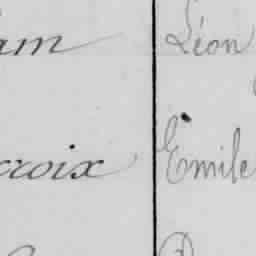 am Léon
croix Emile